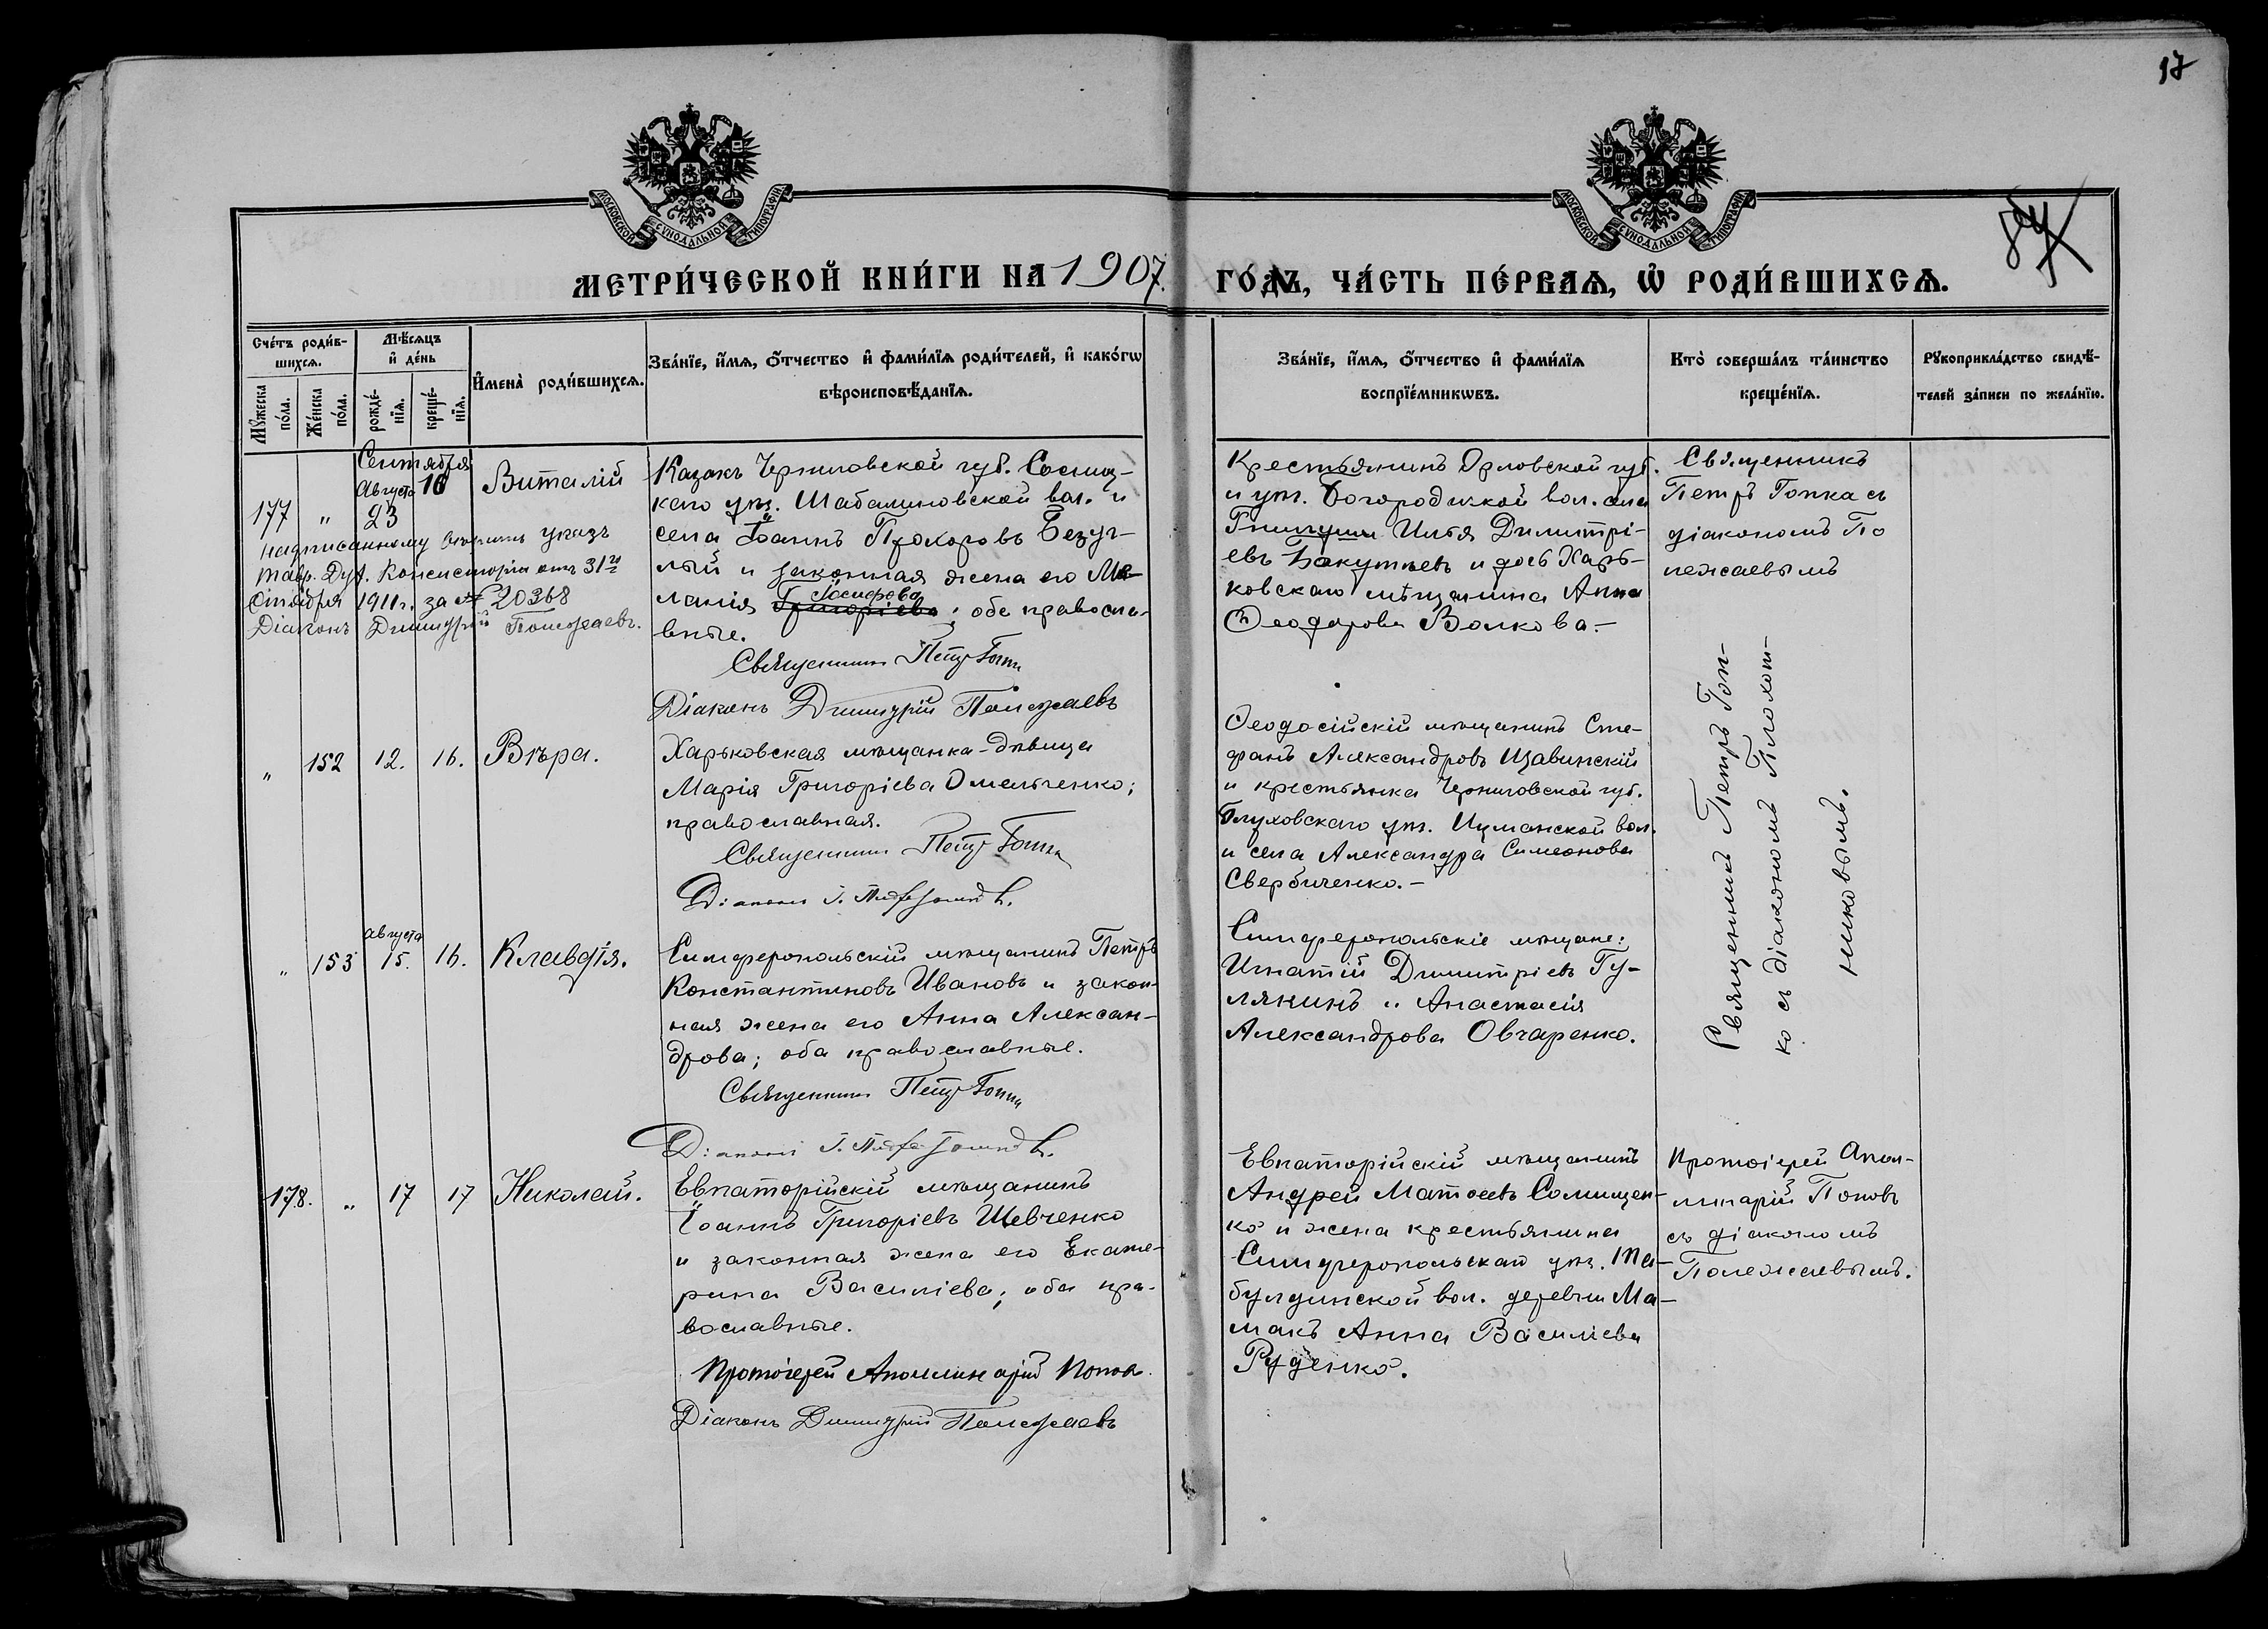 17
МОСКОВСКОЙ СѴНОДАЛЬНОЙ ТИПОГРАФІИ
МОСКОВСКОЙ СѴНОДАЛЬНОЙ ТИПОГРАФІИ
МЕТРИ́ЧЕСКОЙ КНИ́ГИ НА 1907. ГО́ДЪ, ЧА́СТЬ ПЕ́РВАѦ, Ѡ҆ РОДИ́ВШИХСѦ.
Сче́тъ роди́в-
шихсѧ.
Мѣ́сѧцъ
и҆ де́нь
Мꙋ́жеска по́ла.
Же́нска по́ла.
рожде́-
нїѧ.
креще́-
нїѧ.
И҆мена̀ роди́вшихсѧ.
Зва́нїе, и҆́мѧ, ѻ҆́тчество и҆ фами́лїѧ роди́телей, и҆ како́гѡ
вѣроисповѣ́данїѧ.
Зва́нїе, и҆́мѧ, ѻ҆́тчество и҆ фами́лїѧ
воспрїе́мникѡвъ.
Кто̀ соверша́лъ та́инство
креще́нїѧ.
Рꙋкоприкла́дство свидѣ́-
телей за́писи по жела́нїю.
Сентября
Августа 16
177 " 23
Виталій
Казакъ Черниговской губ. Сосниц-
каго уѣз. Шабалиновской вол. и
села Іоаннъ Прохоровъ Безуг-
лый и законная жена его Ме-
Іосифова
ланія Григоріева; обе правосла-
вные.
Священникъ Петръ Гопка
Діаконъ Димитрій Полежаевъ
надписанному вѣрить указъ
Тавр. Дух. Консисторіи отъ 31го
Октября 1911 г. за № 20368
Діаконъ Димитрій Полежаевъ.
Крестьянинъ Орловской губ.
и уѣз. Богородицкой вол. села
Гнилуши Илья Димитрі-
евъ Бакутьевъ и дочь Харь-
ковскаго мѣщанина Анна
Ѳеодорова Волкова.-
Священникъ
Петръ Гопка съ
діакономъ По
лежаевымъ
" 152 12. 16. Вѣра.
Харьковская мѣщанка-дѣвица
Марія Григоріева Омельченко;
православная.
Священникъ Петръ Гопка
Діаконъ І.
Ѳеодосійскій мѣщанинъ Сте-
фанъ Александровъ Щавинскій
и крестьянка Черниговской губ.
Глуховскаго уѣз. Цуманской вол.
и села Александра Симеонова
Свербиченко.-
Священникъ Петръ Гоп-
ко съ діакономъ Плохот-
никовымъ.
августа
" 153 15. 16. Клавдія.
Симферопольскій мѣщанинъ Петръ
Константиновъ Ивановъ и закон-
ная жена его Анна Алексан-
дрова; оба православные.
Священникъ Петръ Гопка
Діаконъ І.
Симферопольскіе мѣщане:
Игнатій Димитріевъ Гу-
лякинъ и Анастасія
Александрова Овчаренко.
178. " 17 17 Николай.
Евпаторійскій мѣщанинъ
Іоаннъ Григоріевъ Шевченко
и законная жена его Екате-
рина Василіева; оба пра-
вославные.
Протоіерей Аполлинарій Поповъ.
Діаконъ Димитрій Полежаевъ
Евпаторійскій мѣщанинъ
Андрей Матѳеевъ Солищен-
ко и жена крестьянина
Симферопольскаго уѣз. Та-
булдинской вол. деревни Ма-
макъ Анна Василіева
Руденко.
Протоіерей Апол-
линарій Поповъ
съ діакономъ
Полежаевымъ.